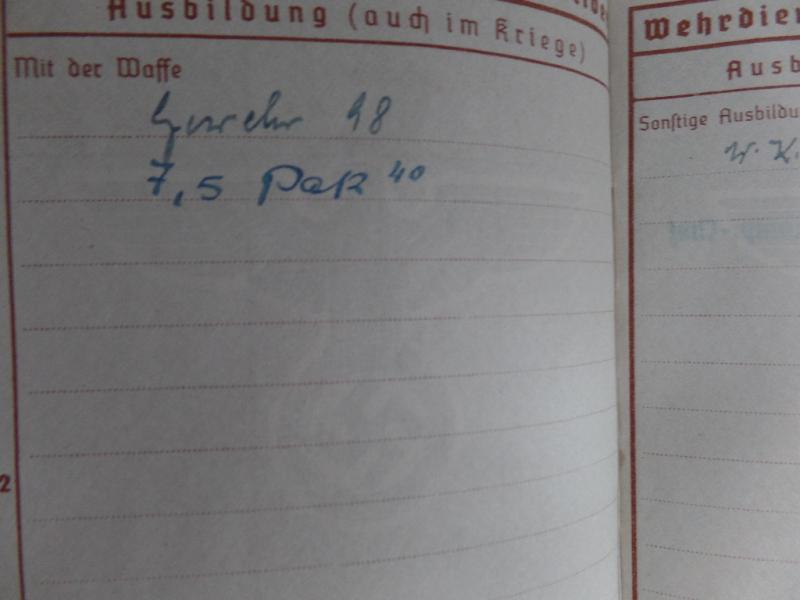 Ausbildung (auch im Kriege)
Mit der Waffe
Gewehr 98
7,5 Pak 40
2
Wehrdien
Ausb
Sonstige Ausbildu
W. K.